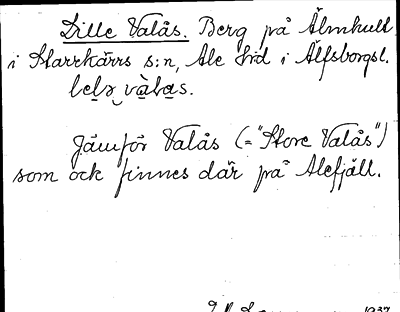 Lille Valås. Berg på Älmhult
i Starrkärrs s:n, Ale hrd i Älfsborgsl.
Jämför Valås (="Store Valås")
som ock finnes där på Alefjäll.
1937